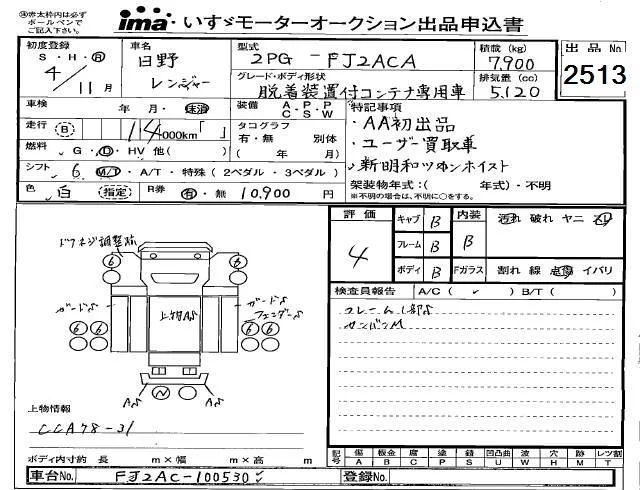 ※赤太枠内は必ず
ボールペンで
ご記入下さい。
ima いすゞモーターオークション出品申込書
初度登録
S・H・R
4/11月
車名
日野
レンジャー
型式
2PG-FJ2ACA
グレード・ボディ形状
脱着装置付コンテナ専用車
積載(kg)
7,900
排気量(cc)
5,120
出品No
2513
車検 年 月・抹消
走行 B 114000km「 」
燃料 G・D・HV 他( )
シフト 6 M/T・A/T・特殊(2ペダル・3ペダル)
色 白 指定
R券 有・無 10,900 円
装備 A・P・P
C・S・W
タコグラフ
有・無 別体
( 年 月)
特記事項
・AA初出品
・ユーザー買取車
・新明和ツインホイスト
架装物年式:( 年式)・不明
※実施年がある場合は、不明に○をする。
評価
4
キャブ B
フレーム B
ボディ B
内装
B
Fガラス
汚れ 破れ ヤニ
割れ 線 点傷 イバリ
検査員報告 A/C(✓) B/T( )
フレームS部S
カンバンM
ドアネジ調整跡
6 6
6 6
ガードS
ガードS
フェンダーS
上物AS
6 6 6 6
N
AS AS
上物情報
CCA78-31
ボディ内寸約 長 m×幅 m×高 m
記号 傷 板金 腐 塗 錆 凹凸曲 波 穴 跡 レツ割
A B C P S U W H M T
車台No. FJ2AC-100530✓
登録No.